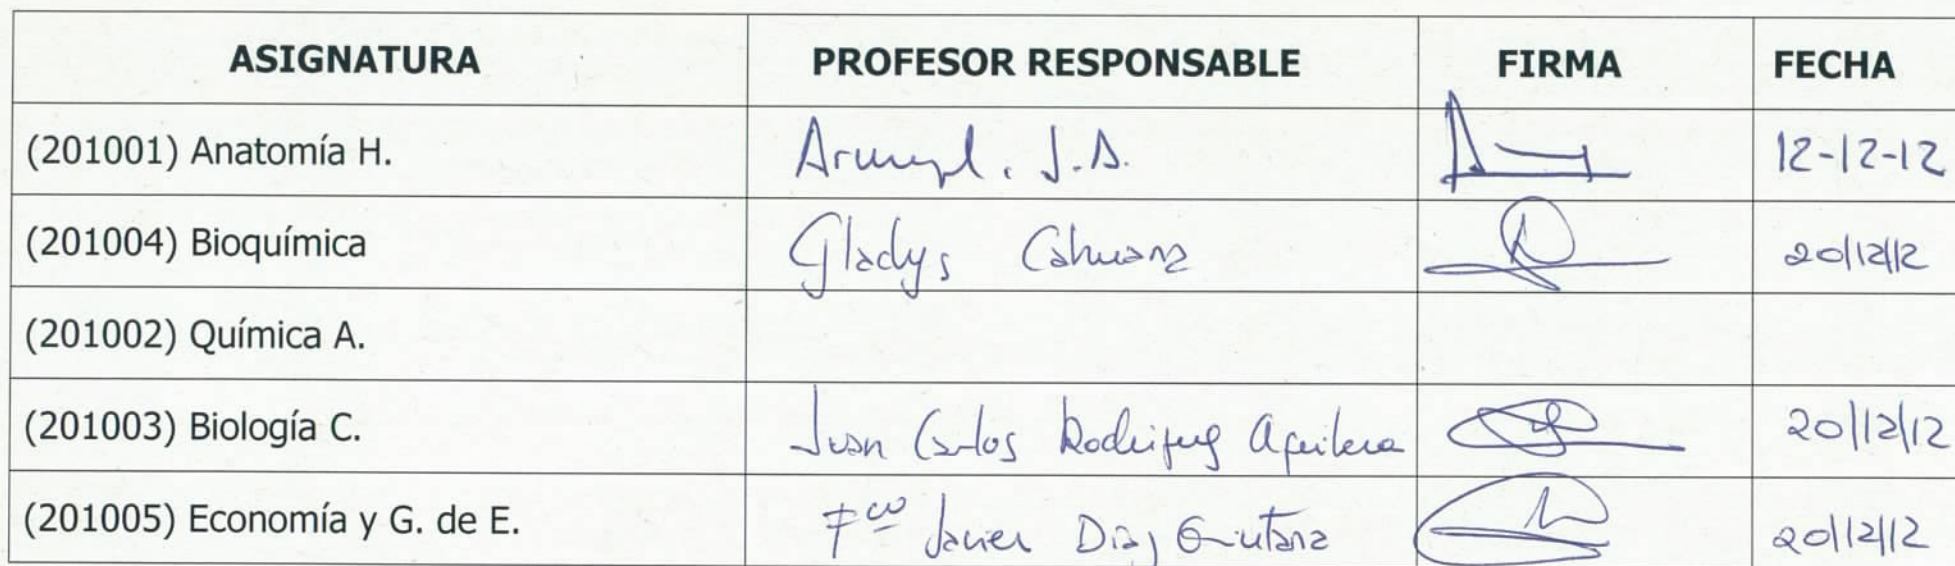 ASIGNATURA PROFESOR RESPONSABLE FIRMA FECHA
(201001) Anatomía H. J.A. 12-12-12
(201004) Bioquímica Gladys Cahuana 20/12/12
(201002) Química A.
(201003) Biología C. Juan Carlos Rodriguez Aguilera 20/12/12
(201005) Economía y G. de E. Fco Javier Diaz Quintana 20/12/12